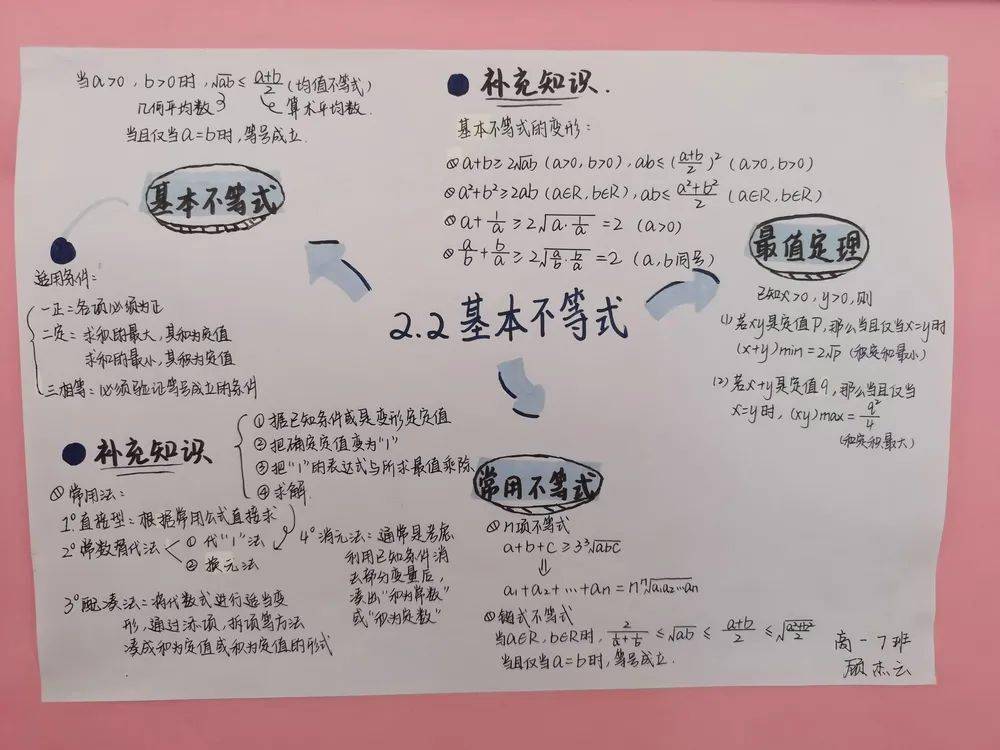 当a>0，b>0时，√ab ≤ (a+b)/2 (均值不等式)
几何平均数 算术平均数.
当且仅当a=b时，等号成立.
基本不等式
适用条件：
一正：各项必须为正
二定：求积的最大，其和为定值
求和的最小，其积为定值
三相等：必须验证等号成立的条件
补充知识.
基本不等式的变形：
① a+b≥2√ab (a>0，b>0)，ab≤((a+b)/2)² (a>0，b>0)
② a²+b²≥2ab (a∈R，b∈R)，ab≤(a²+b²)/2 (a∈R，b∈R)
③ a+1/a≥2√(a·1/a)=2 (a>0)
④ a/b+b/a≥2√(a/b·b/a)=2 (a，b同号)
2.2 基本不等式
最值定理
已知x>0，y>0，则
(1) 若xy是定值P，那么当且仅当x=y时
(x+y)min=2√P (积定和最小)
(2) 若x+y是定值q，那么当且仅当
x=y时，(xy)max=q²/4
(和定积最大)
补充知识
① 常用法：
1° 直接型：根据常用公式直接求
2° 常数替代法 ① 代“1”法
② 换元法
① 据已知条件或是变形定定值
② 把确定定值变为“1”
③ 把“1”的表达式与所求最值乘除
④ 求解
3° 配凑法：将代数式进行适当变
形，通过添项、拆项等方法
凑成和为定值或积为定值的形式
4° 消元法：通常是考虑
利用已知条件消
去部分变量后，
凑出“和为常数”
或“积为定数”
常用不等式
① n项不等式
a+b+c≥3³√abc
⇓
a₁+a₂+…+an=nⁿ√a₁a₂…an
② 链式不等式
当a∈R，b∈R时，2/(1/a+1/b)≤√ab≤(a+b)/2≤√((a²+b²)/2)
当且仅当a=b时，等号成立.
高一7班
顾杰云